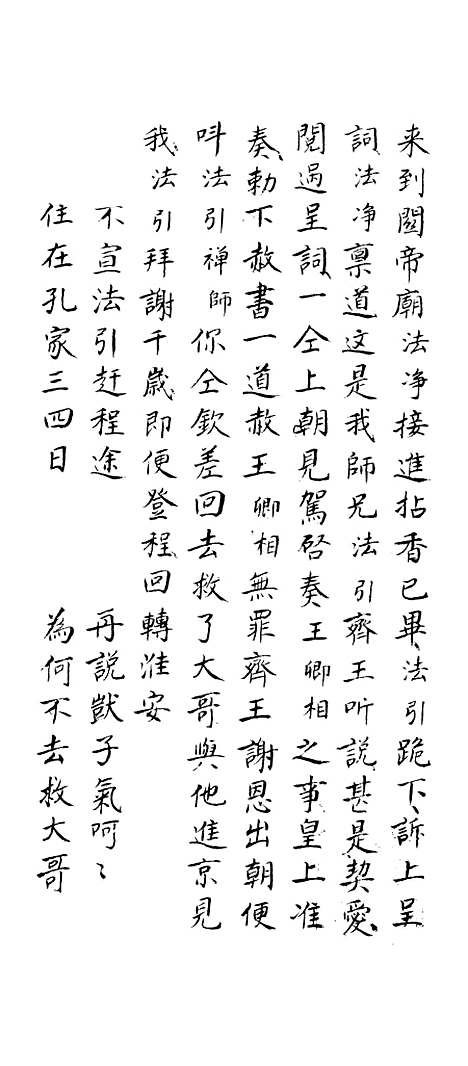 来到関帝廟法净接進拈香已畢法引跪下訴上呈
詞法净禀道这是我師兄法引齊王听説甚是契愛
閲過呈詞一仝上朝見駕啓奏王卿相之事皇上准
奏勅下赦書一道赦王卿相無罪齊王謝恩出朝便
呌法引禅師你仝欽差回去救了大哥與他進京見
我法引拜謝千歳即便登程回轉淮安
不宣法引赶程途 再説獃子氣呵〻
住在孔家三四日 為何不去救大哥